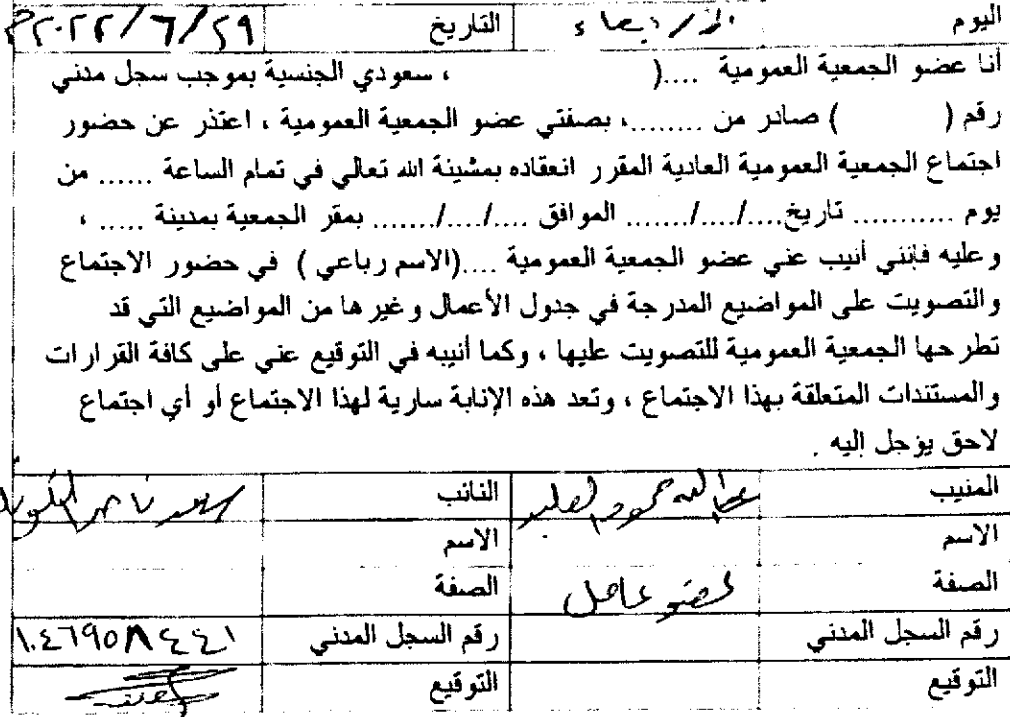 اليوم الاربعاء التاريخ ٢٠٢٢/٦/٢٩م
أنا عضو الجمعية العمومية ....( ، سعودي الجنسية بموجب سجل مدني
رقم ( ) صادر من ........، بصفتي عضو الجمعية العمومية ، اعتذر عن حضور
اجتماع الجمعية العمومية العادية المقرر انعقاده بمشيئة الله تعالي في تمام الساعة ...... من
يوم ........... تاريخ..../..../....... الموافق ..../..../....... بمقر الجمعية بمدينة ..... ،
وعليه فإنني أنيب عني عضو الجمعية العمومية ....(الاسم رباعي ) في حضور الاجتماع
والتصويت على المواضيع المدرجة في جدول الأعمال وغيرها من المواضيع التي قد
تطرحها الجمعية العمومية للتصويت عليها ، وكما أنيبه في التوقيع عني على كافة القرارات
والمستندات المتعلقة بهذا الاجتماع ، وتعد هذه الإنابة سارية لهذا الاجتماع أو أي اجتماع
لاحق يؤجل إليه .
المنيب عبدالله حمود النائب ناصر
الاسم الاسم
الصفة عضو عامل الصفة
رقم السجل المدني رقم السجل المدني ١٠٤٦٩٥٨٤٤١
التوقيع التوقيع